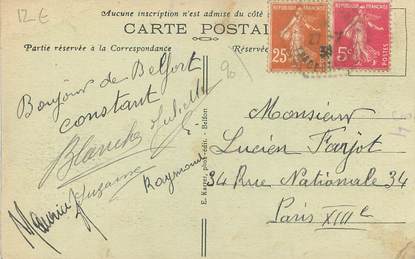 12 €
Aucune inscription n'est admise du côté
CARTE POSTALE
Partie réservée à la Correspondance
Réservé
REPUBLIQUE FRANÇAISE
25c
POSTES
5c
Bonjour de Belfort
constant
Blanche Juliette
Suzanne
Raymond
Maurice
E. Karrer, phot.-édit. - Belfort
Monsieur
Lucien Farjot
34 Rue Nationale 34
Paris XIIIe